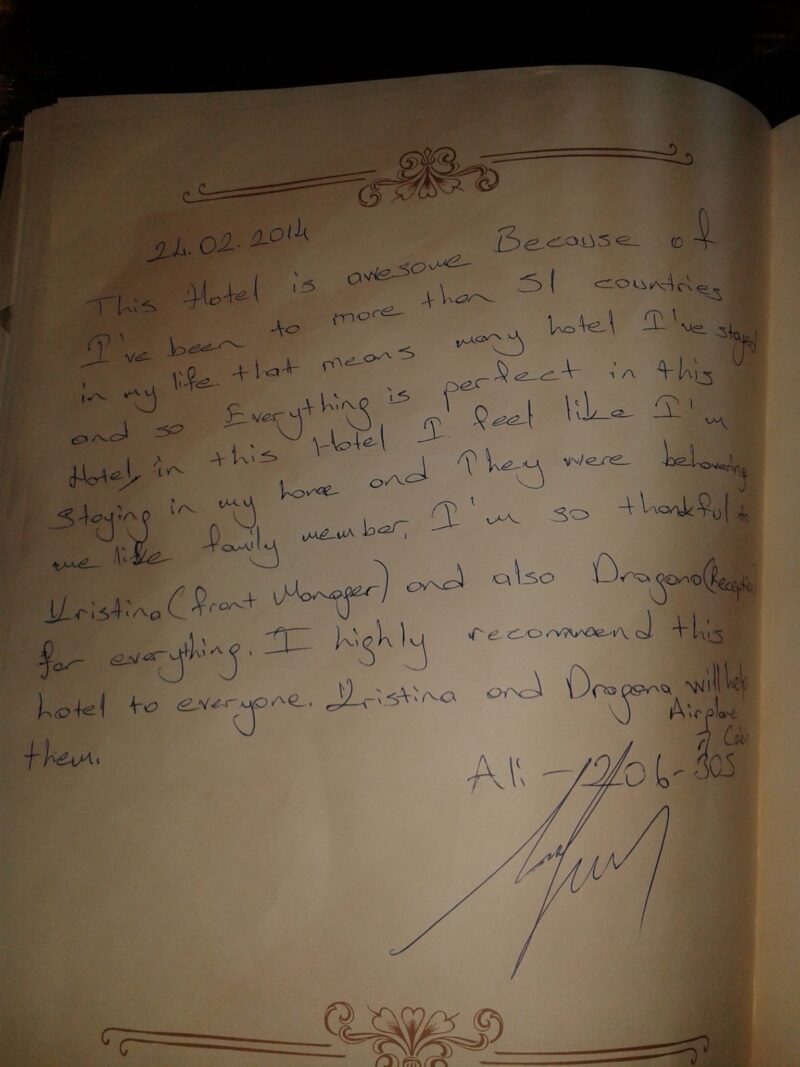 24.02.2014
This Hotel is awesome Because of
I've been to more than 51 countries
in my life. that means many hotel I've stayed
and so Everything is perfect in this
Hotel, in this Hotel I feel like I'm
Staying in my home and They were behavering
me like family member. I'm so thankful to
Kristina (front Manager) and also Dragana (Reception)
for everything. I highly recommend this
hotel to everyone. Kristina and Dragana will help
them.
Airplane
Ali - 1206-305